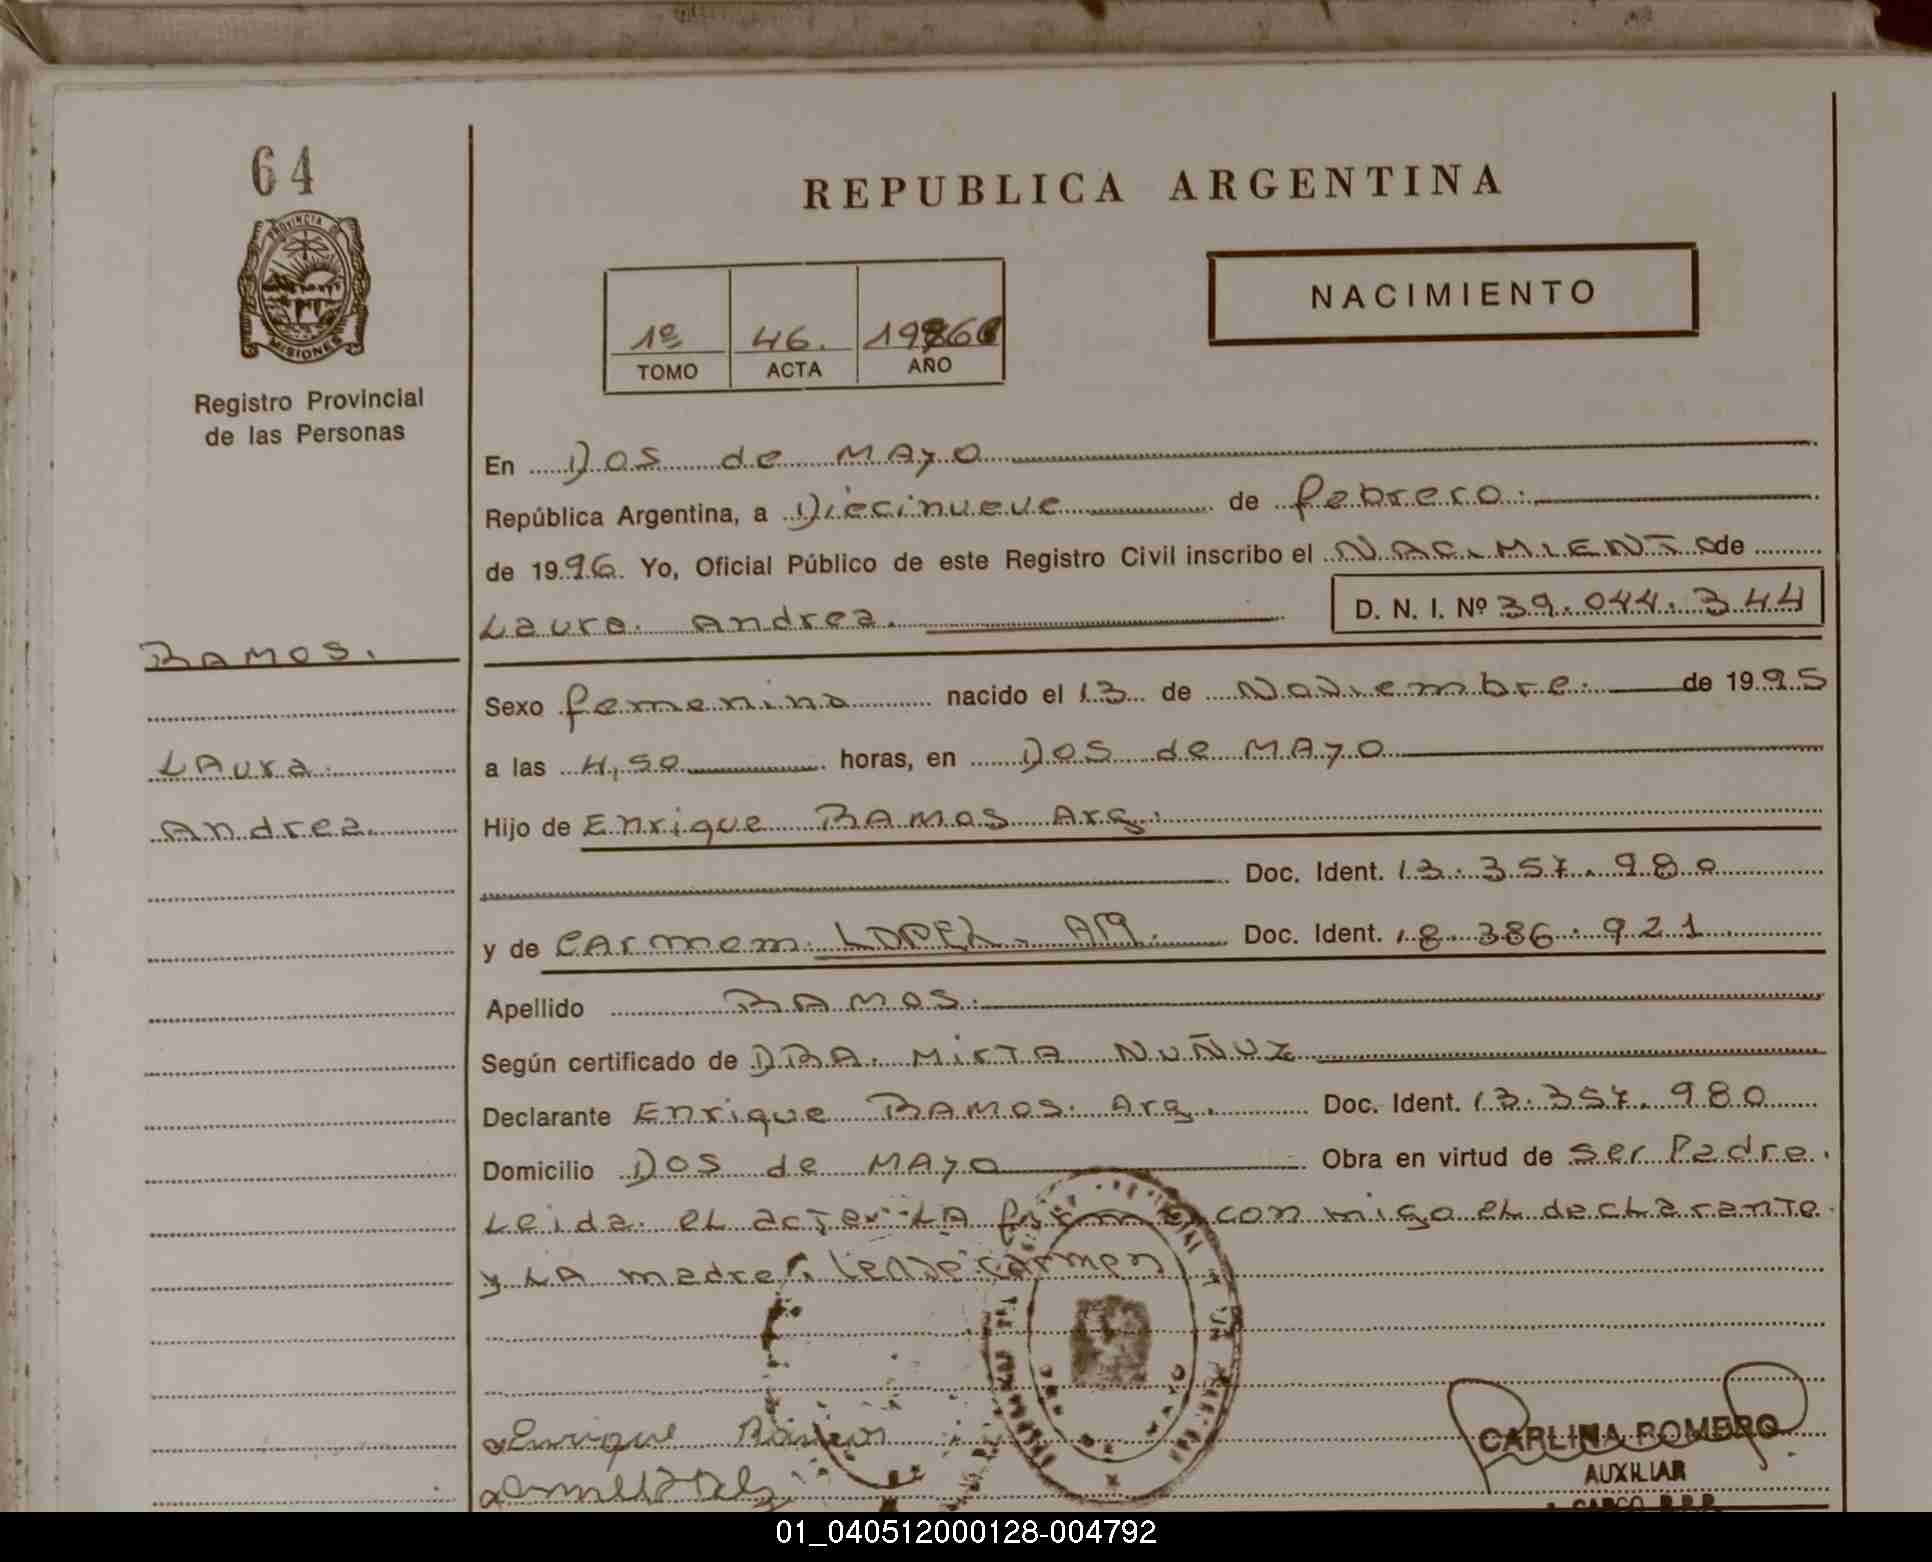 64
PROVINCIA D
MISIONES
Registro Provincial
de las Personas
REPUBLICA ARGENTINA
NACIMIENTO
1º 46. 1996
TOMO ACTA AÑO
En Dos de MAyo
República Argentina, a Diecinueve de febrero.
de 1996. Yo, Oficial Público de este Registro Civil inscribo el NACIMIENTO de
Laura Andrea. D. N. I. Nº 39.044.344
RAMOS.
Sexo femenino nacido el 13 de Noviembre. de 1995
LAura
a las 4,50 horas, en Dos de MAyo
Andrea
Hijo de Enrique RAMOS Arg.
Doc. Ident. 13.357.980
y de CArmem LOPEZ. AR. Doc. Ident. 18.386.921
Apellido RAMOS.
Según certificado de DRA. MirTA NuÑUZ
Declarante Enrique RAMOS. Arg. Doc. Ident. 13.357.980
Domicilio Dos de MAyo Obra en virtud de ser Padre.
Leida el acta LA firma con migo el decLarante
y LA madre Carmen
Enrique Ramos
CARLINA ROMERO
AUXILIAR
A CARGO R.P.P.
01_040512000128-004792